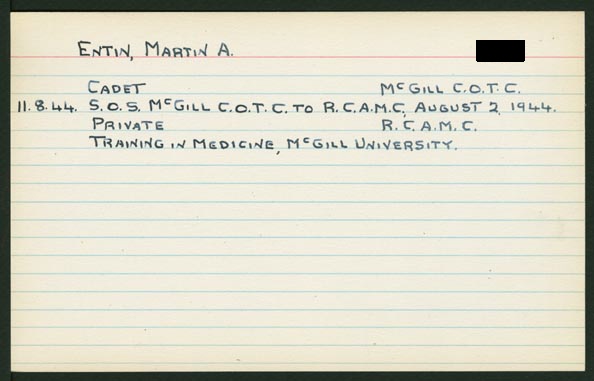 Entin, Martin A.
Cadet McGill C.O.T.C.
11.8.44. S.O.S. McGill C.O.T.C. to R.C.A.M.C. August 2, 1944.
Private R.C.A.M.C.
Training in Medicine, McGill University.